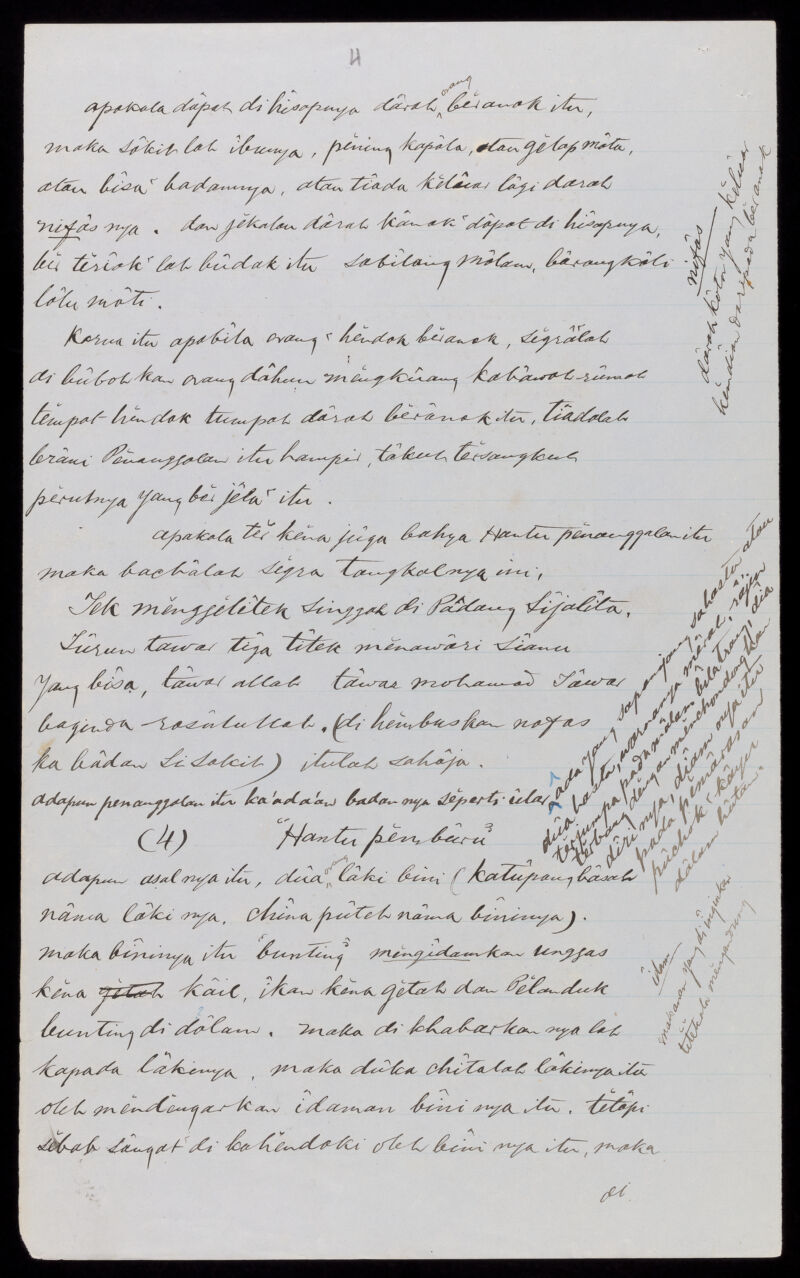 4
apakala dāpat di hīsapnya dārah orang bĕranak itu,
maka sākit lah ībunya, pĕning kapāla, atau gĕlap māta,
atau bīsa² badannya, atau tiāda kĕlūar lāgi darah
nifās nya. dan jĕkalau dārah kānak² dāpat di hisapnya,
bĕr tĕrīak² lah būdak itu sabīlang mālam, bārangkāli
lālu māti.
Karna itu apabīla orang² hĕndak bĕranak, sĕgrālah
di būboh kan orang dāhun mĕngkūang kabāwah rūmah
tĕmpat hĕndak tumpah dārah bĕrānak itu, tiādalah
brāni Pĕnanggalan itu hampir, tākut tĕrsangkut
pĕrutnya yang bĕr jĕla² itu.
apakala tĕr kĕna jūga bahya Hantu pĕnanggalan itu
maka bachālah sĕgra tangkalnya ini,
Tek mĕnggĕlītek singgah di Pādang Sījalīta.
Tūrun tawar tīga tītek mĕnawāri Sīanu
Yang bīsa, tāwar allah tāwar mohamad Tāwar
baginda rasūlullah. (di hĕmbuskan nafas
ka bādan si sakit) itulah sahāja.
adapun penanggalan itu ka'ada'an badan nya sĕperti ūlar
(4) "Hantu pĕmbūrū"
adapun asal nya itu, dūa orang lāki bini (Katūpang bāsah
nāma lāki nya. Chīna pūteh nāma bīninya).
maka bīninya itu "bunting" mĕngīdamkan unggas
kĕna gĕtah kāil, īkan kĕna gĕtah dan Pĕlanduk
bunting di dālam. maka di khabarkan nya lah
kapada lākinya. maka dūka chītalah lākinya itu
oleh mĕndĕngarkan īdaman bīni nya itu. tĕtāpi
sĕbab sāngat² di kahĕndaki oleh bīni nya itu, maka
di
nifās
dārah kōtor yang kĕlūar
kĕmdīan daripada bĕranak
ada yang sapanjang sahasta atau
dūa hasta, warnanya mērah, sājin
tĕrjumpa pada mālam būlan trang, dīa
tĕrbang dĕngan mĕnchondongkan
dīri nya, dīam nya itu
pada pĕmārasan
pūchok² kāyu
dālam hūtan.
īdam
makanan yang di inginkan
tĕtkala mĕngandung